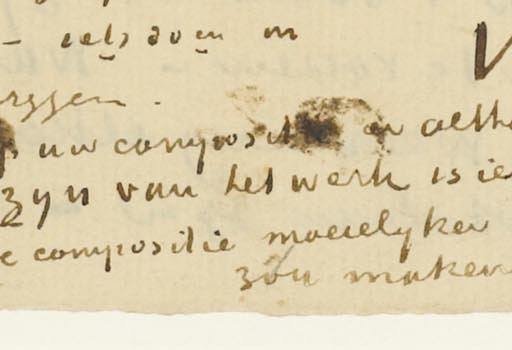 – iets doen in
eggen.
uw compositie en aesth
zyn van het werk is ie
e compositie moeielyker
zou maken